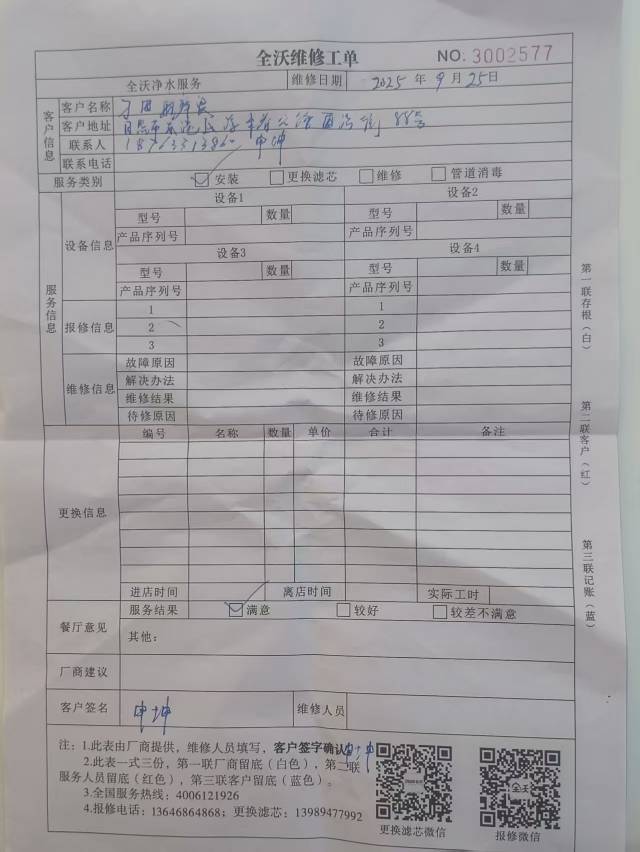 全沃维修工单
NO: 3002577
全沃净水服务 维修日期 2025 年 9 月 25 日
客户信息
客户名称
客户地址
联系人 申坤
联系电话
服务类别 安装 更换滤芯 维修 管道消毒
服务信息
设备信息
设备1 设备2
型号 数量 型号 数量
产品序列号 产品序列号
设备3 设备4
型号 数量 型号 数量
产品序列号 产品序列号
报修信息
1 1
2 2
3 3
维修信息
故障原因 故障原因
解决办法 解决办法
维修结果 维修结果
待修原因 待修原因
更换信息
编号 名称 数量 单价 合计 备注
进店时间 离店时间 实际工时
餐厅意见
服务结果 满意 较好 较差不满意
其他:
厂商建议
客户签名 申坤 维修人员
注: 1.此表由厂商提供，维修人员填写，客户签字确认 申坤
2.此表一式三份，第一联厂商留底（白色），第二联
服务人员留底（红色），第三联客户留底（蓝色）。
3.全国服务热线: 4006121926
4.报修电话: 13646864868; 更换滤芯: 13989477992
更换滤芯微信
全沃
报修微信
第一联存根（白）
第二联客户（红）
第三联记账（蓝）